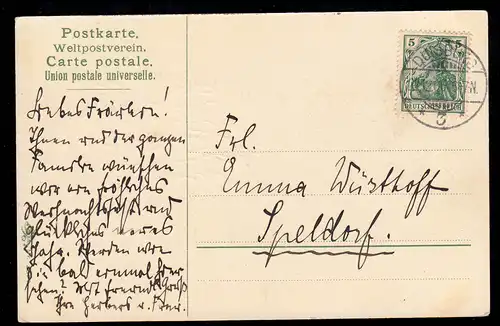 Postkarte.
Weltpostverein.
Carte postale.
Union postale universelle.
5
5
DEUTSCHES REICH
DUISBURG
3
Liebes Fräulein!
Ihnen und der ganzen
Familie wünschen
wir ein fröhliches
Weihnachtsfest und
glückliches neues
Jahr. Werden wir
Sie bald einmal hier
sehen? Mit freundl. Gruß
Ihre Herbers u. Frau.
Frl.
Emma Wüsthoff
Speldorf.